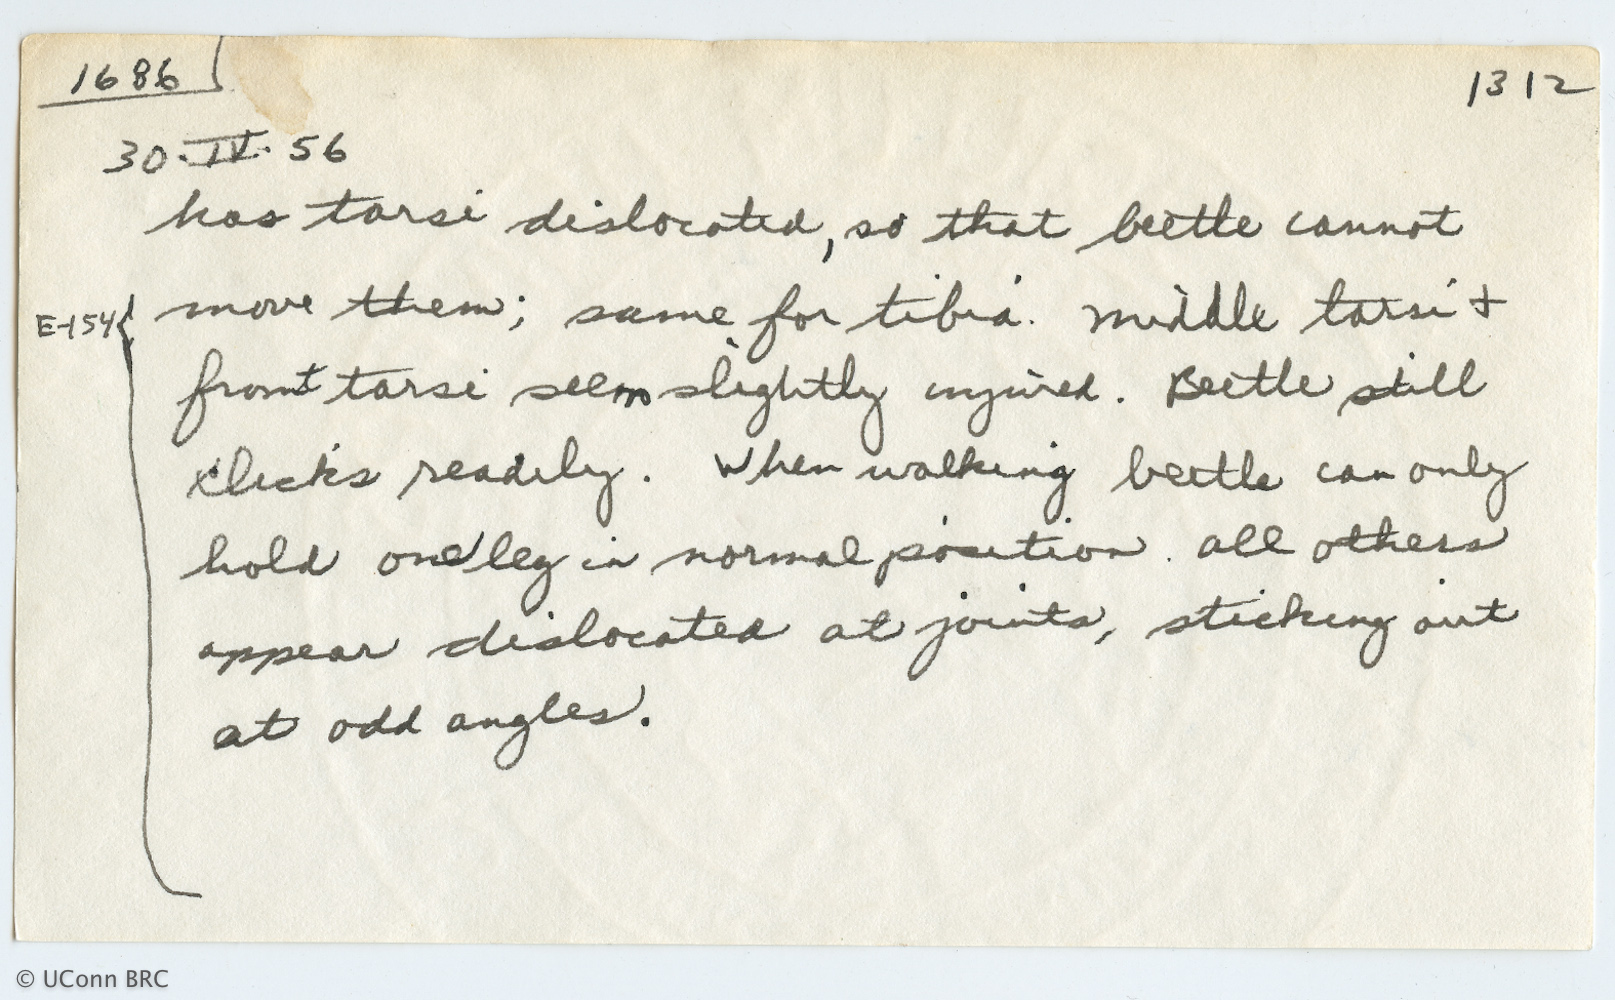 1686
1312
30·IV·56
has tarsi dislocated, so that beetle cannot
E-154 { move them; same for tibia. Middle tarsi +
front tarsi seem slightly injured. Beetle still
clicks readily. When walking beetle can only
hold one leg in normal position. All others
appear dislocated at joints, sticking out
at odd angles.
© UConn BRC